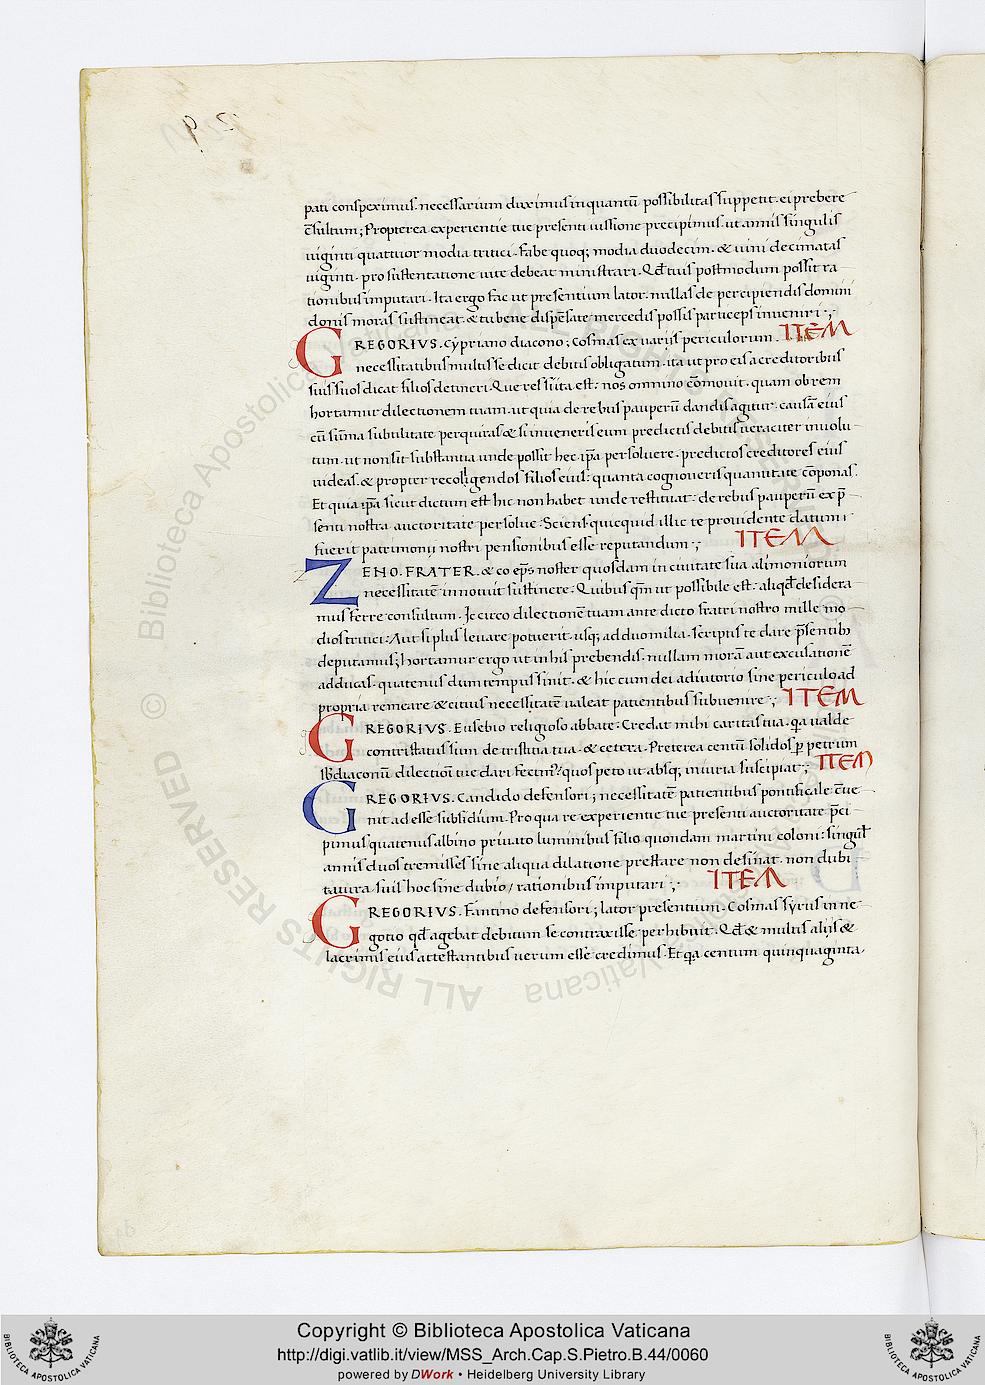 pati conspeximus. necessarium duximus inquantū possibilitas suppetit. ei prebere
c̄sultum; Propterea experientie tue presenti iussione precipimus. ut annis singulis
uiginti quattuor modia tritici. fabe quoq; modia duodecim. & uini decimatas
uiginti. pro sustentatione uite debeat ministrari. Qd̄ tuis postmodum possit ra
tionibus imputari. Ita ergo fac ut presentium lator. nullas de percipiendis domini
donis moras sustineat. & tu bene dispēsate mercedis possis particeps inueniri.;
ITEM
GREGORIVS. cypriano diacono; Cosmas ex uarijs periculorum.
necessitatibus multis se dicit debitis obligatum. ita ut pro eis a creditoribus
suis suos dicat filios detineri. Que res si ita est: nos omnino cōmouit. quam ob rem
hortamur dilectionem tuam. ut quia de rebus pauperū dandis agitur. causā eius
cū sūma subtilitate perquiras & si inueneris eum predictis debitis ueraciter inuolu
tum. ut non sit substantia unde possit hec ip̄a persoluere. predictos creditores eius
uideas. & propter recolligendos filios eius. quanta cognoueris quantitate cōponas.
Et quia ip̄a sicut dictum est hic non habet unde restituat: de rebus pauperū ex p̄
senti nostra auctoritate persolue. Sciens quicquid illic te prouidente datum
fuerit patrimonij nostri pensionibus esse reputandum.;
ITEM
ZENO. FRATER. & co ep̄s noster quosdam in ciuitate sua alimoniorum
necessitatē innotuit sustinere. Quibus qm̄ ut possibile est. aliqd̄ desidera
mus ferre consultum. Jccirco dilectionē tuam ante dicto fratri nostro mille mo
dios tritici. Aut si plus leuare potuerit. usq; ad duo milia. scriptis te dare p̄sentib;
deputamus; hortamur ergo ut in his prebendis. nullam morā aut excusationē
adducas. quatenus dum tempus sinit. & hic cum dei adiutorio sine periculo ad
propria remeare & citius necessitatē ualeat patientibus subuenire.;
ITEM
GREGORIVS. Eusebio religioso abbate. Credat mihi caritas tua. qa ualde
contristatus sum de tristitia tua. & cetera. Preterea centū solidos p̱ petrum
sb̄diaconū dilectioni tue dari fecim9. quos peto ut absq; iniuria suscipiat.;
ITEM
GREGORIVS. Candido defensori; necessitatē patientibus pontificale c̄ue
nit adesse subsidium. Pro qua re experientie tue presenti auctoritate p̄ci
pimus quatenus albino priuato luminibus filio quondam martini coloni: singul̄
annis duos tremisses sine aliqua dilatione prestare non desinat. non dubi
tatura suis hoc sine dubio / rationibus imputari.;
ITEM
GREGORIVS. Fantino defensori; lator presentium. Cosmas syrus in ne
gotio qd̄ agebat debitum se contraxisse perhibuit. Qd̄ & multis alijs &
lacrimis eius attestantibus uerum esse credimus. Et qa centum quinquaginta.
Copyright © Biblioteca Apostolica Vaticana
http://digi.vatlib.it/view/MSS_Arch.Cap.S.Pietro.B.44/0060
powered by DWork • Heidelberg University Library